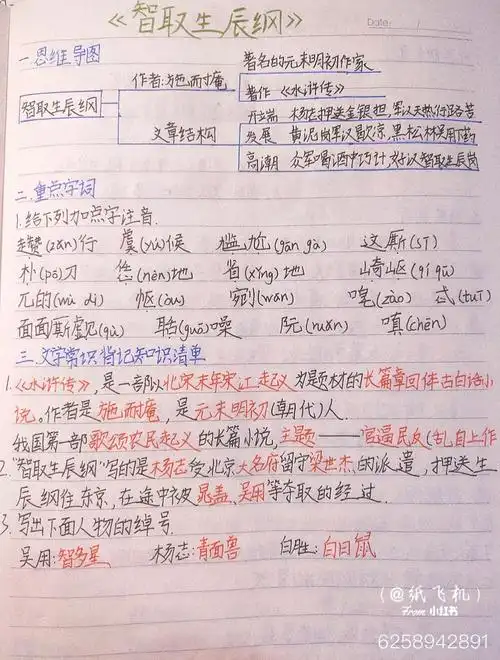 《智取生辰纲》
Date:
一.思维导图
著名的元末明初作家
作者:施耐庵
著作《水浒传》
智取生辰纲
开端 杨志押送金银担,军汉天热行路苦
文章结构
发展 黄泥岗军汉歇凉,黑松林吴用下药
高潮 众军喝酒中巧计,好汉智取生辰岗
二.重点字词
1.给下列加点字注音.
趱(zǎn)行 虞(yú)候 尴尬(gān gà) 这厮(sī)
朴(pō)刀 恁(nèn)地 省(xǐng)地 崎岖(qí qū)
兀的(wù dì) 怄(òu) 剜(wān) 唣(zào) 忒(tuī)
面面厮觑(qù) 聒(guō)噪 阮(ruǎn) 嗔(chēn)
三.文学常识背记知识清单
1.《水浒传》是一部以北宋末年宋江起义为题材的长篇章回体古白话小
说。作者是施耐庵,是元末明初(朝代)人.
我国第一部歌颂农民起义的长篇小说,主题——官逼民反(乱自上作
2."智取生辰纲"写的是杨志受北京大名府留守梁世杰的派遣,押送生
辰纲往东京,在途中被晁盖、吴用等夺取的经过.
3.写出下面人物的绰号.
吴用:智多星 杨志:青面兽 白胜:白日鼠
(@纸飞机)
From 小红书
6258942891